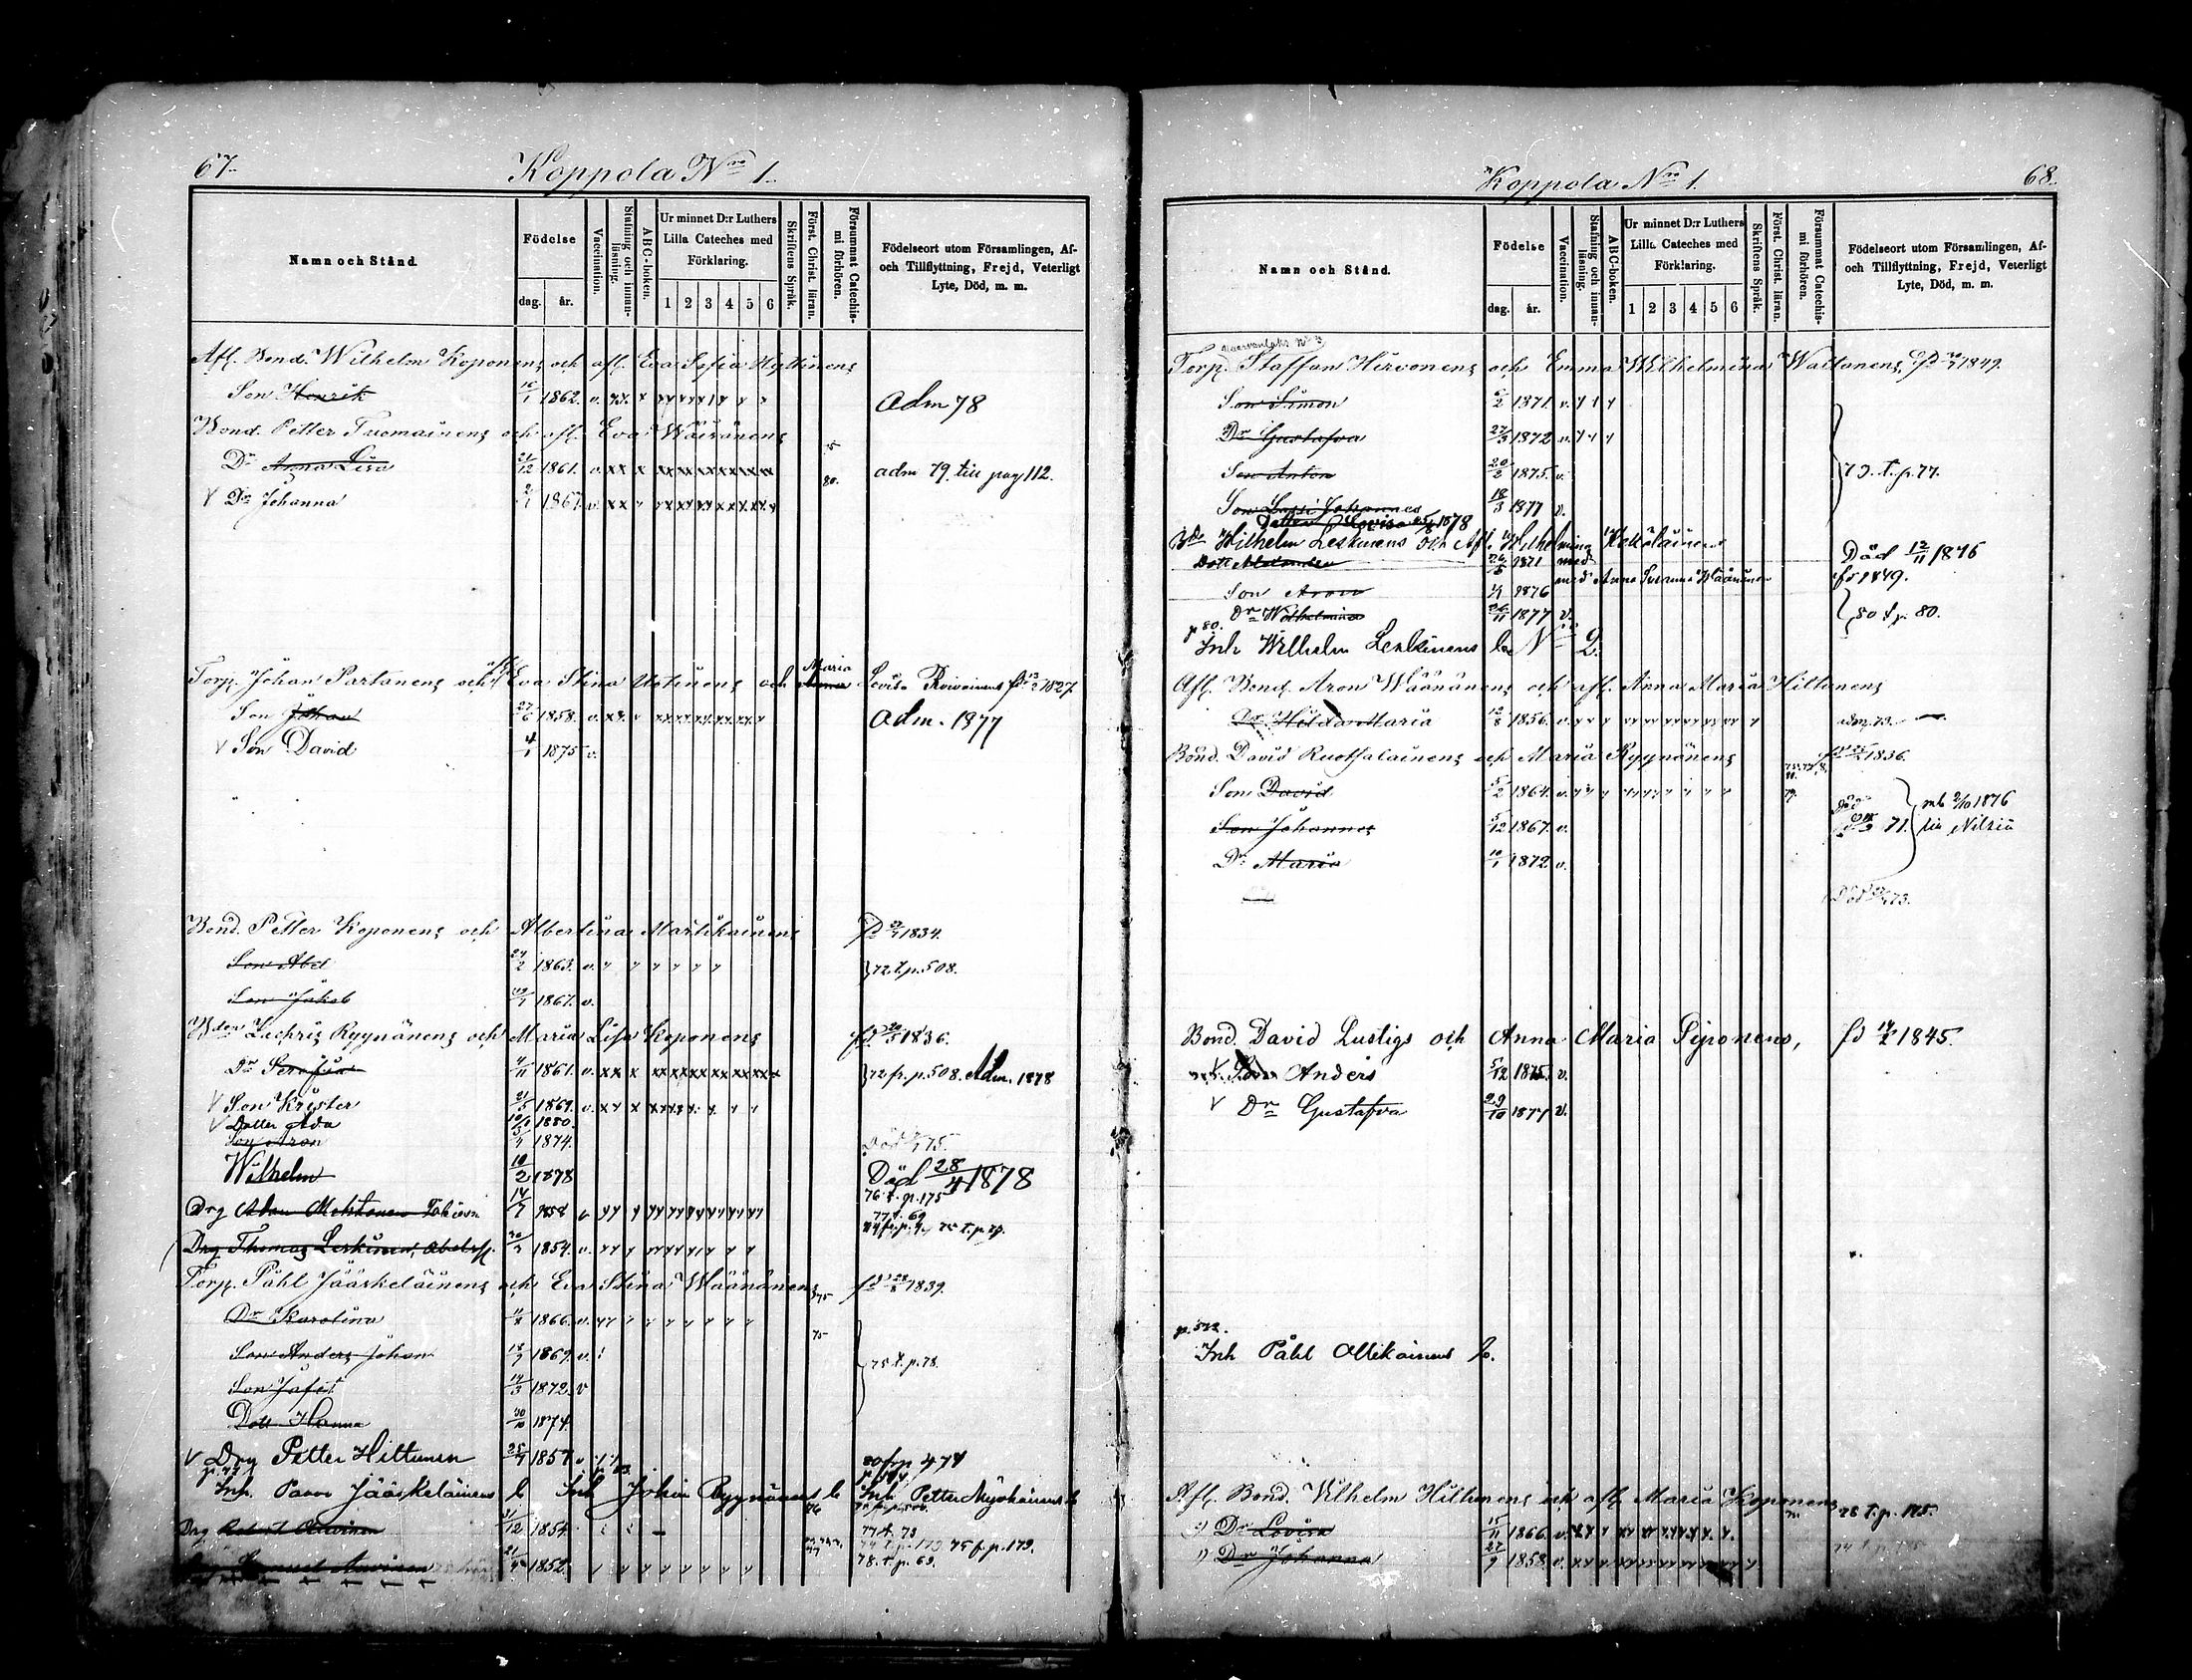 67.
Koppola No 1.
Namn och Stånd.
Födelse
dag. år.
Vaccination.
Stafning och innanläsning.
ABC-boken.
Ur minnet D:r Luthers Lilla Cateches med Förklaring.
1 2 3 4 5 6
Skriftens Språk.
Först. Christ. läran.
Försummat Catechismi förhören.
Födelseort utom Församlingen, Af- och Tillflyttning, Frejd, Veterligt Lyte, Död, m. m.
Afl. Bond. Wilhelm Koponens och afl. Eva Sofia Hyttinens
Son Henrik 16/1 1862. v. Adm 78
Bond. Petter Tuomainens och afl. Eva Wäisänens
Dr Anna Lisa 21/12 1861. v. adm 79. till pag 112.
V Dr Johanna 1867. v. 80.
Torp. Johan Partanens och Eva Stina Uotinens och Maria Lovisa Roivainens 1827
Son Johan 27/6 1858. v. Adm. 1877
V Son David 4/1 1875 v.
Bond. Petter Koponens och Albertina Martikainens 1834.
Son Abel 24/2 1863. v. 72. t. p. 508.
Son Jakob 1867. v.
Zachris Ryynänens och Maria Lisa Koponens 1836.
Dr Serafia 4/11 1861. v. 72 fr. p. 508. Adm. 1878
V Son Krister 21/5 1869. v.
V Dotter Ada 1880.
Son Aron 1874. Död 75.
Wilhelm 10/2 1878 Död 28/4 1878
76 t. p. 175
Drg Adam Mehtonen 14/7 1858 v
Drg Thomas Leskinen, 1854. v. 75 t. p. 79.
Torp. Påhl Jääskeläinens och Eva Stina Wäänänens 75 1839.
Dr Karolina 1866. v. 75
Son Anders Johan 18/9 1869. v. 75 t. p. 78.
Son Jafet 14/3 1872. v
Dott. Hanna 30/10 1874.
V Drg Petter Hiltunen 25/7 1857 v 80 fr p 474
Inh. Paavo Jääskeläinens b. Inh Johan Ryynänens b Inh Petter Nyykäinens b
Drg 31/12 1854. 77 t. 78
Samuel 1852. 78. t. p. 69.
68.
Koppola No 1.
Namn och Stånd.
Födelse
dag. år.
Vaccination.
Stafning och innanläsning.
ABC-boken.
Ur minnet D:r Luthers Lilla Cateches med Förklaring.
1 2 3 4 5 6
Skriftens Språk.
Först. Christ. läran.
Försummat Catechismi förhören.
Födelseort utom Församlingen, Af- och Tillflyttning, Frejd, Veterligt Lyte, Död, m. m.
Torp. Staffan Hirvonens och Emma Wilhelmina Wattanens, 1849.
Son Simon 6/2 1871. v.
Dr Gustafva 27/3 1872 v.
Son Anton 20/2 1875. v. 79. t. p. 77.
Son Lassi Johannes 18/3 1877 v.
Dotter Lovisa 1878
Wilhelm Leskinens och Afl. Wilhelmina Kekäläinens Död 12/11 1876
Dott Matanda 26/5 1871 med Anna Susanna Wäänänen 1849.
Son Aron 1876
Dr Wilhelmina 26/11 1877 v. 80 t p. 80.
p 80. Inh Wilhelm Leskinens b No 2.
Afl. Bond. Aron Wäänänens och afl. Anna Maria Hiltunens
Dr Hilda Maria 12/8 1856. v.
Bond. David Ruotsalainens och Maria Ryynänens 1836.
Son David 5/2 1864. v. mb 2/10 1876 till Nilsiä
Son Johannes 5/12 1867. v. 71.
Dr Maria 10/1 1872. v.
Död 73.
Bond. David Lustigs och Anna Maria Piponens, fd 14/2 1845.
V Son Anders 5/12 1875. v.
V Dr Gustafva 29/10 1877 v.
p. 522.
Inh Påhl Ollikainens b.
Afl. Bond. Vilhelm Hiltunens och afl. Maria Koponens
Dr Lovisa 15/11 1866. v. 78 t. p. 175.
Dr Johanna 27/9 1858. v.